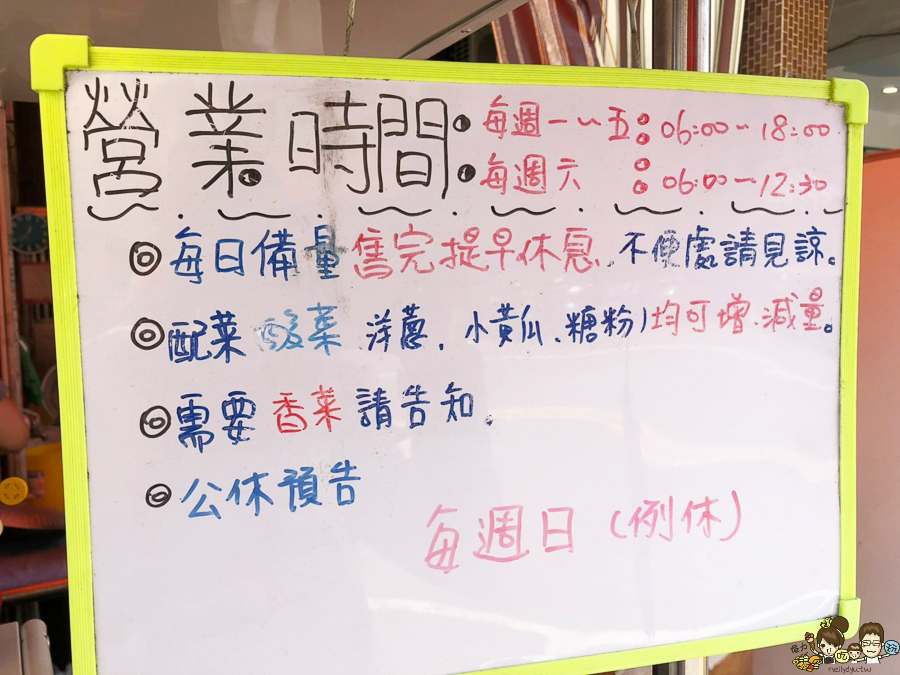 營業時間
每週一~五：06:00~18:00
每週六：06:00~12:30
每日備量售完提早休息.不便處請見諒。
配菜 酸菜 洋蔥.小黃瓜.糖粉)均可增.減量。
需要香菜請告知.
公休預告
每週日(例休)
nellydyu.tw